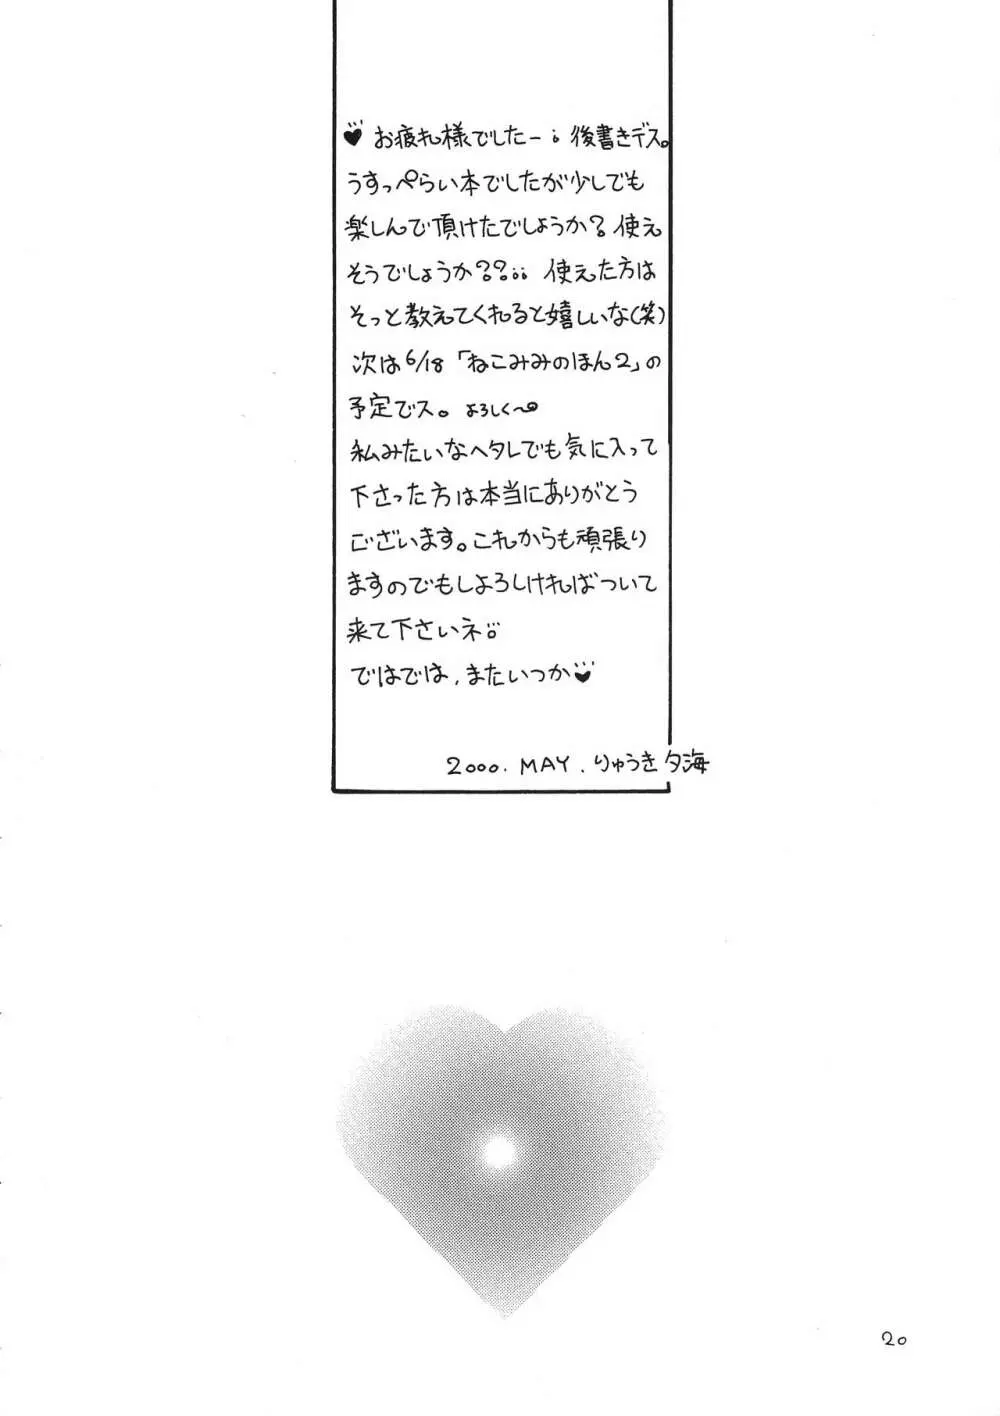 ♥お疲れ様でしたー。後書きデス。
うすっぺらい本でしたが少しでも
楽しんで頂けたでしょうか?使え
そうでしょうか??。。使えた方は
そっと教えてくれると嬉しいな(笑)
次は6/18「ねこみみのほん2」の
予定でス。よろしく〜
私みたいなヘタレでも気に入って
下さった方は本当にありがとう
ございます。これからも頑張り
ますのでもしよろしければついて
来て下さいネ。
ではでは、またいつか♥
2000.MAY.りゅうき夕海
20